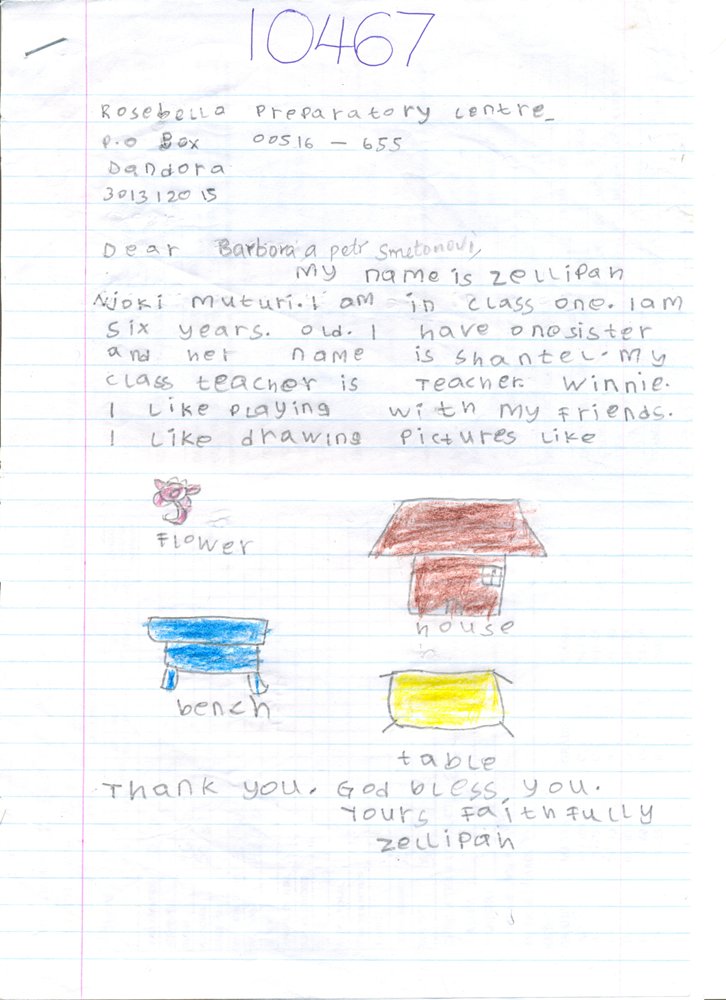 10467
Rosebella Preparatory Centre
P.O Box 00516 - 655
Dandora
301312015
Dear Barbora a petr Smetanovi,
My name is zellipah
Njoki muturi. I am in class one. I am
six years. old. I have one sister
and her name is shantel. my
class teacher is Teacher. Winnie.
I Like playing with my friends.
I Like drawing pictures Like
Flower
house
bench
table
Thank you. God bless you.
Yours Faithfully
zellipah